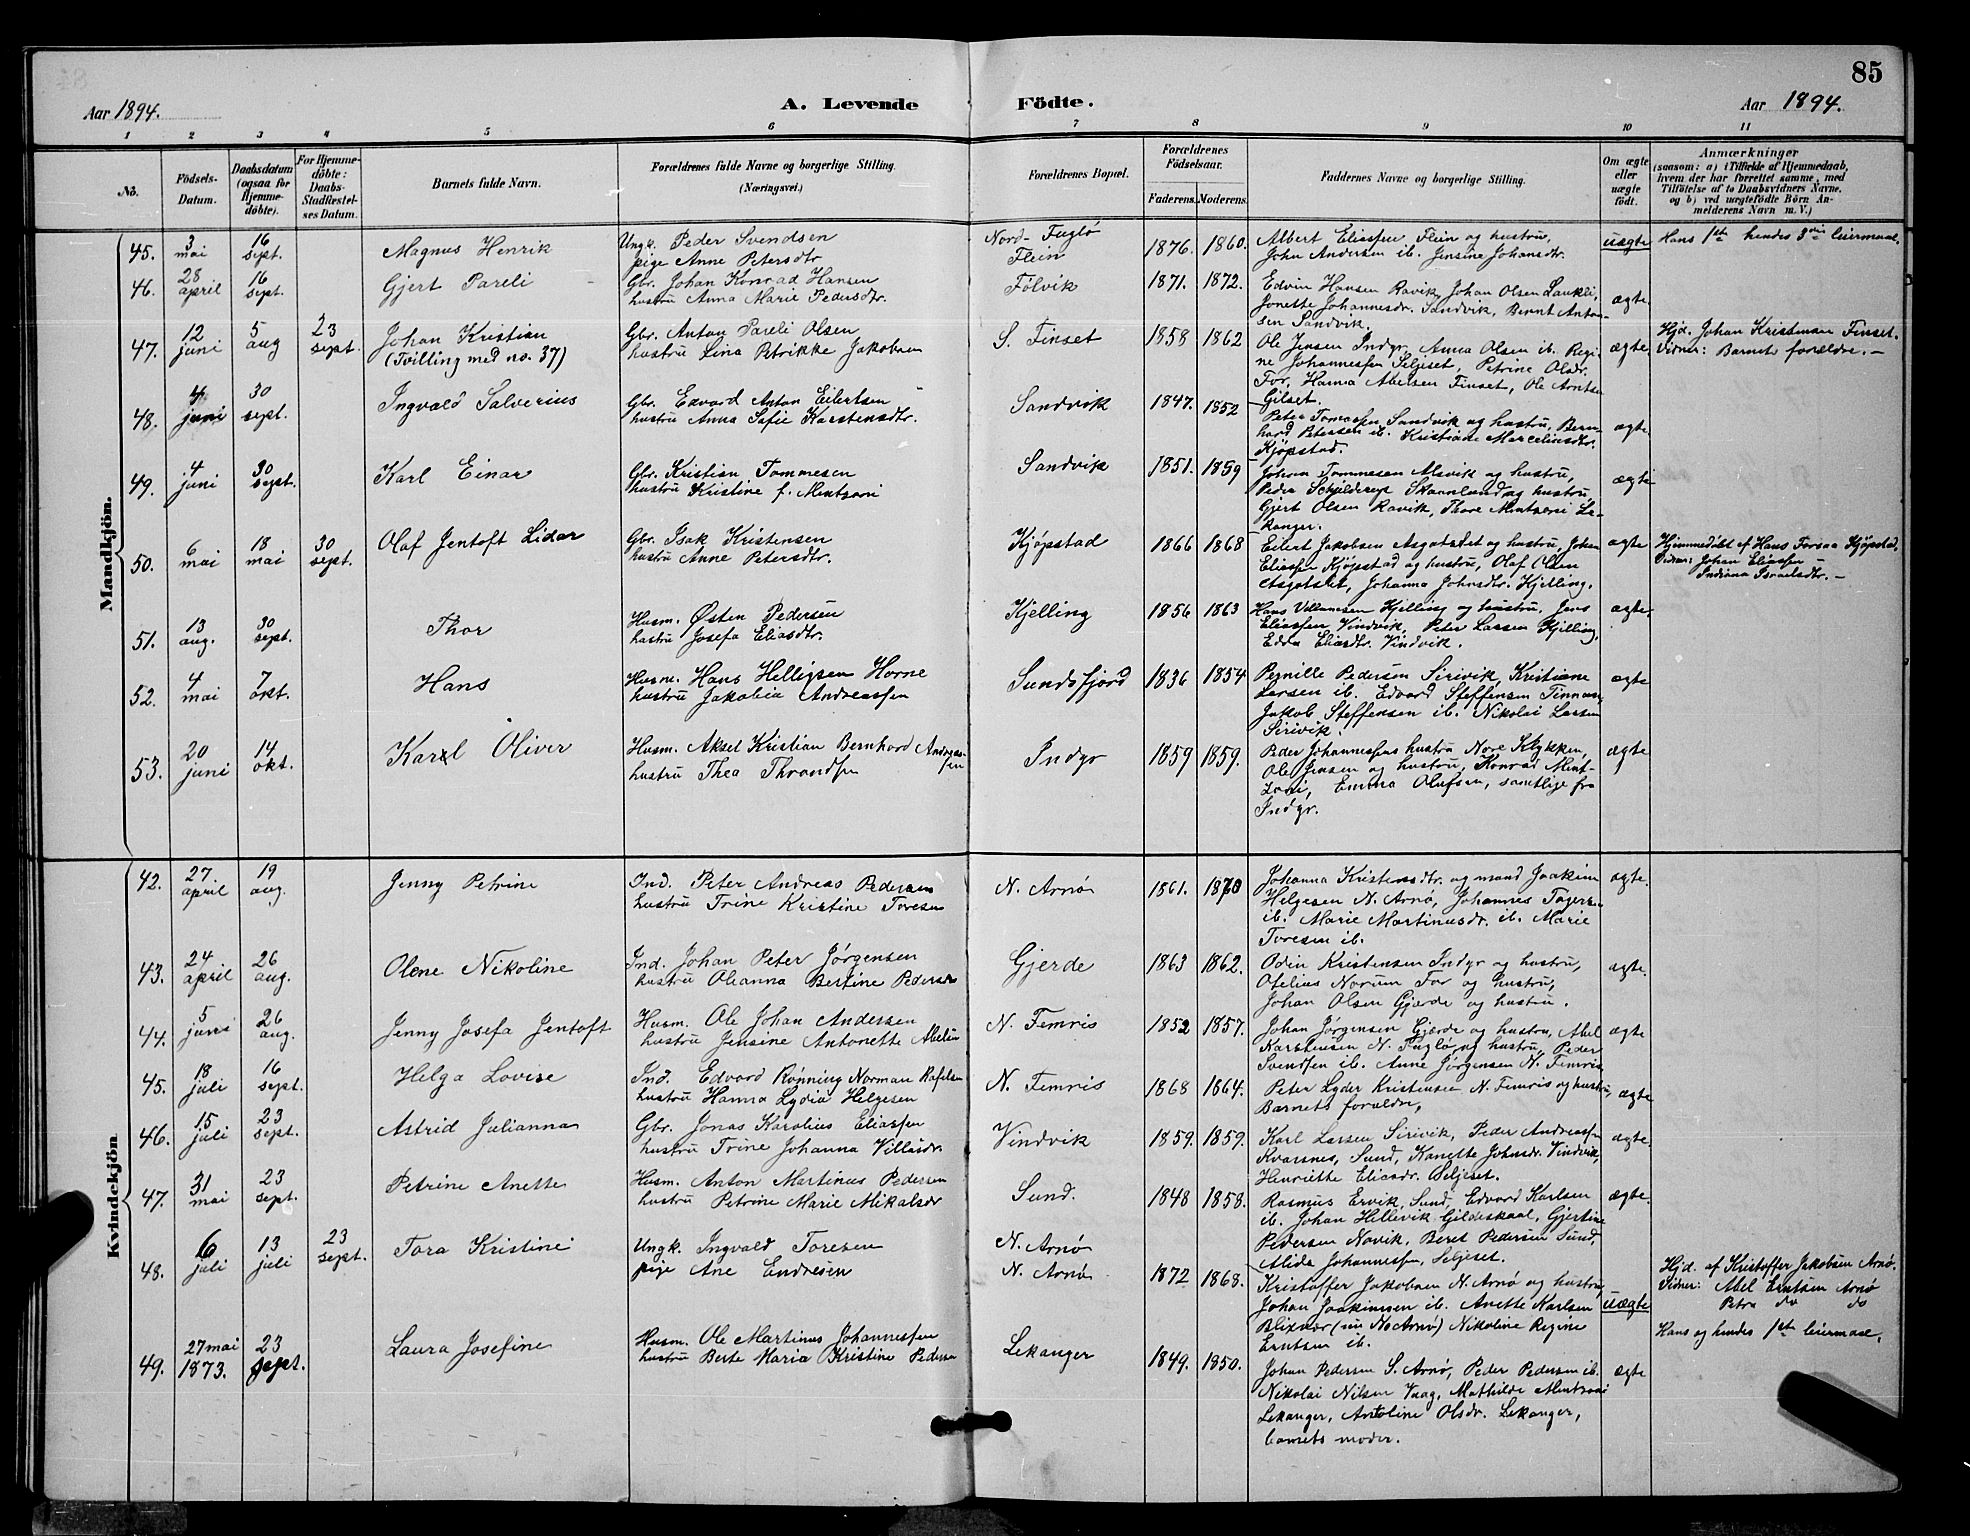 85
Aar 1894. A. Levende Födte. Aar 1894.
1 2 3 4 5 6 7 8 9 10 11
No. Födsels-Datum. Daabsdatum (ogsaa for Hjemmedöbte). For Hjemmedöbte: Daabs-Stadfæstelses Datum. Barnets fulde Navn. Forældrenes fulde Navne og borgerlige Stilling. (Næringsvei.) Forældrenes Bopæl. Forældrenes Födselsaar. Faderens. Moderens. Faddernes Navne og borgerlige Stilling. Om ægte eller uægte födt. Anmærkninger (saasom: a) i Tilfælde af Hjemmedaab, hvem der har forrettet samme, med Tilföielse af to Daabsvidners Navne, og b) ved uægtefödte Börn Anmelderens Navn m. V.)
Mandkjön.
45. 3 mai 16 sept. Magnus Henrik
Ungk. Peder Svendsen
pige Anne Petersdtr
Nord-Fuglø
Flein
1876. 1860.
Albert Eliassen Flein og hustru,
John Andersen ib. Jensine Johansdtr.
uægte
Hans 1ste hendes 3die leiermaal.
46. 28 april 16 sept. Gjert Pareli
Gbr. Johan Konrad Hansen
hustru Anna Marie Pedersdtr.
Fölvik 1871. 1872.
Edvin Hansen Ravik, Johan Olsen Laukli,
Jonette Johannesdr. Sandvik, Bernt Anton-
sen Sandvik.
ægte
47. 12 juni 5 aug 23 sept. Johan Kristian
(Tvilling med no. 37)
Gbr. Anton Pareli Olsen
hustru Lina Petrikke Jakobsen
S. Finset 1858 1862
Ole Jensen Indyr, Anna Olsen ib. Regi-
ne Johannessen Seljeset, Petrine Olsdr.
For, Hanna Abelsen Finset, Ole Arntsen
Gilset.
ægte
Hjd. Johan Kristiansen Finset.
Vidner: Barnets forældre. —
48. 4 juni 30 sept. Ingvald Salverius
Gbr. Edvard Anton Eilertsen
hustru Anna Sofie Karstensdtr.
Sandvik 1847. 1852
Peter Tomassen Sandvik og hustru, Bern-
hard Petersen ib. Kristiane Marceliusdtr.
Kjøpstad.
ægte
49. 4 juni 30 sept. Karl Einar
Gbr. Kristian Tommesen
hustru Kristine f. Mentzoni
Sandvik 1851. 1859
Johan Tommesen Alsvik og hustru,
Peder Schjelderup Skaanland og hustru,
Gjert Olsen Ravik, Thore Mentzoni Le-
kanger.
ægte
50. 6 mai 18 mai 30 sept. Olaf Jentoft Lidar
Gbr. Isak Kristensen
hustru Anne Petersdtr.
Kjøpstad 1866 1868
Eilert Jakobsen Asgotslet og hustru, Johan
Eliassen Kjøpstad og hustru, Olaf Olsen
Asgotslet, Johanna Johnsdtr. Kjelling.
ægte
Hjemmedøbt af Hans Forsaa Kjøpstad,
Vidner: Johan Eliassen —
Indiana Israelsdtr. —
51. 13 aug. 30 sept. Thor
Husm. Østen Pedersen
hustru Josefa Eliasdtr.
Kjelling 1856 1863
Hans Villumsen Kjelling og hustru, Jens
Eliassen Vindvik, Peter Larsen Kjelling,
Edda Eliasdtr. Vindvik.
ægte
52. 4 mai 7 okt. Hans
Husm. Hans Helligsen Horne
hustru Jakobia Andreassen
Sundsfjord 1836 1854
Pernille Pedersen Sirivik, Kristiane
Larsen ib. Edvard Steffensen
Jakob Steffensen ib. Nikolai Larsen
Sirivik.
ægte
53. 20 juni 14 okt. Karl Oliver
Husm. Aksel Kristian Bernhard Andreas-
sen
hustru Thea Thrandsen
Indyr 1859 1859.
Peder Johannessens hustru Nore Klykken,
Ole Jensen og hustru, Konrad Ment-
zoni, Emma Olufsen, samtlige fra
Indyr.
ægte
Kvindekjön.
42. 27. april 19 aug. Jenny Petrine
Ind. Peter Andreas Pedersen
hustru Trine Kristine Toresen
N. Arnø 1861. 1870
Johanna Kristensdtr. og mand Joakim
Helgesen N. Arnø, Johannes
ib. Marie Martinusdr. ib. Marie
Toresen ib.
ægte.
43. 24 april 26 aug. Olene Nikoline
Ind. Johan Peter Jørgensen
hustru Oleanna Bertine Pedersdr
Gjerde 1863 1862.
Odin Kristensen Indyr og hustru,
Ofelius Norum For og hustru,
Johan Olsen Gjerde og hustru.
ægte.
44. 5 juni 26 aug. Jenny Josefa Jentoft
Husm. Ole Johan Andersen
hustru Jensine Antonette Abelsen
N. Femris 1852 1857.
Johan Jørgensen Gjerde og hustru, Abel
Karstensen N. Fuglø og hustru, Peder
Svendsen ib. Anne Jørgensen N. Femris
ægte
45. 18 juli 16 sept. Helga Lovise
Ind. Edvard Rønning Norman Rafelsen
hustru Hanna Lydia Helgesen
N. Femris 1868 1864.
Peter Lyder Kristensen N. Femris og hustru,
Barnets forældre,
ægte
46. 15 juli 23 sept. Astrid Julianna
Gbr. Jonas Karolius Eliassen
hustru Trine Johanna Villasdr.
Vindvik 1859. 1859.
Karl Larsen Sirivik, Peder Andreassen
Kvarsnes, Sund, Kanette Johnsdr. Vindvik,
Henriette Eliasdr. Seljeset.
ægte.
47. 31 mai 23 sept. Petrine Anette
Husm. Anton Martinus Pedersen
hustru Petrine Marie Mikalsdr
Sund. 1848 1858.
Rasmus Ervik, Sund, Edvard Karlsen
ib. Johan Hellevik Gildeskaal, Gjertine
Pedersen Novik, Beret Pedersen Sund,
Alida Johannessen, Seljeset.
ægte.
48. 6 juli 13 juli 23 sept. Tora Kristine
Ungk. Ingvald Toresen
pige Ane Endresen
N. Arnø
N. Arnø
1872 1868.
Kristoffer Jakobsen N. Arnø og hustru,
Johan Joakimsen ib. Anette Karlsen
Blixvær (nu N. Arnø) Nikoline Regine
Erntsen ib.
uægte
Hjd. af Kristoffer Jakobsen Arnø.
Vidner: Abel Erntsen Arnø
Petra do do
Hans og hendes 1ste leiermaal.
49. 27 mai 1873. 23 sept. Laura Josefine
Husm. Ole Martinus Johannessen
hustru Berte Maria Kristine Pedersen
Lekanger 1849. 1850.
Johan Pedersen S. Arnø, Peder Pedersen ib.
Nikolai Nilsen Vaag, Mathilde Mentzoni
Lekanger, Antoline Olsdr. Lekanger,
barnets moder.
ægte